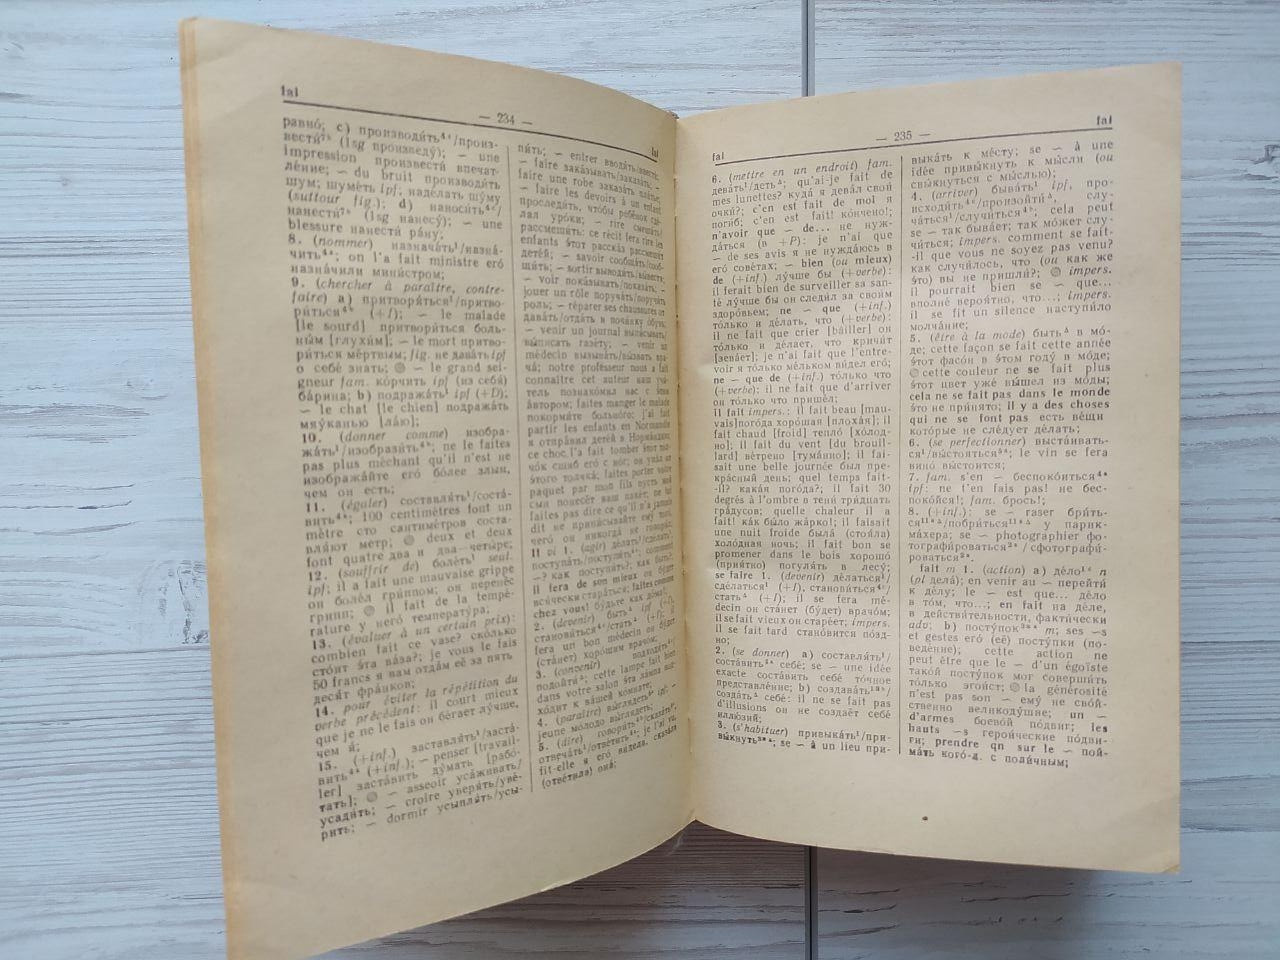 fai
— 234 —
fai
равно́; c) производи́ть⁴ᵃ/произ-
вести́⁷ᵇ (1sg произведу́); ~ une
impression произвести́ впечат-
ле́ние; ~ du bruit производи́ть
шум; шуме́ть ipf; наде́лать шу́му
(suttour fig.); d) наноси́ть⁴ᶜ/
нанести́⁷ᵇ (1sg нанесу́); ~ une
blessure нанести́ ра́ну;
8. (nommer) назнача́ть¹/назна́-
чить⁴ᵃ; on l'a fait ministre его́
назна́чили мини́стром;
9. (chercher à paraître, contre-
faire) a) притворя́ться¹/притво-
ри́ться⁴ᵇ (+I); ~ le malade
[le sourd] притвори́ться боль-
ны́м [глухи́м]; ~ le mort притво-
ри́ться мёртвым; fig. не дава́ть ipf
о себе́ знать; ~ le grand sei-
gneur fam. ко́рчить ipf (из себя́)
ба́рина; b) подража́ть¹ ipf (+D);
~ le chat [le chien] подража́ть
мяу́канью [ла́ю];
10. (donner comme) изобра-
жа́ть¹/изобрази́ть⁴ᵃ; ne le faites
pas plus méchant qu'il n'est не
изобража́йте его́ бо́лее злым,
чем он есть;
11. (égaler) составля́ть¹/соста́-
вить⁴ᵃ; 100 centimètres font un
mètre сто сантиме́тров соста-
вля́ют метр; deux et deux
font quatre два и два—четы́ре;
12. (souffrir de) боле́ть¹ seul.
ipf; il a fait une mauvaise grippe
он боле́л гри́ппом; он перенёс
грипп; il fait de la tempé-
rature у него́ температу́ра;
13. (évaluer à un certain prix):
combien fait ce vase? ско́лько
сто́ит э́та ва́за?; je vous le fais
50 francs я вам отда́м её за пять-
деся́т фра́нков;
14. pour éviter la répétition du
verbe précédent: il court mieux
que je ne le fais он бе́гает лу́чше,
чем я;
15. (+inf.) заставля́ть¹/заста́-
вить⁴ᵃ (+inf.); ~ penser [travail-
ler] заста́вить ду́мать [рабо́-
тать]; ~ asseoir уса́живать/
усади́ть; ~ croire уверя́ть/уве́-
рить; ~ dormir усыпля́ть/усы-
пи́ть; ~ entrer вводи́ть/ввести́;
~ faire зака́зывать/заказа́ть; ~
faire une robe заказа́ть пла́тье;
~ faire les devoirs à un enfant
проследи́ть, что́бы ребёнок сде́-
лал уро́ки; ~ rire смеши́ть/
рассмеши́ть; ce récit fera rire les
enfants э́тот расска́з рассмеши́т
дете́й; ~ savoir сообща́ть/сооб-
щи́ть; ~ sortir выводи́ть/вы́вести;
~ voir пока́зывать/показа́ть; ~
jouer un rôle поруча́ть/поручи́ть
роль; ~ réparer ses chaussures от-
дава́ть/отда́ть в почи́нку о́бувь;
~ venir un journal выпи́сывать/
вы́писать газе́ту; ~ venir un
médecin вызыва́ть/вы́звать вра-
ча́; notre professeur nous a fait
connaître cet auteur наш учи́-
тель познако́мил нас с э́тим
а́втором; faites manger le malade
покорми́те больно́го; j'ai fait
partir les enfants en Normandie
я отпра́вил дете́й в Норма́ндию;
ce choc l'a fait tomber э́тот тол-
чо́к сшиб его́ с ног; он упа́л от
э́того толчка́; faites porter votre
paquet par mon fils пусть мой
сын понесёт ваш паке́т; ne lui
faites pas dire ce qu'il n'a jamais
dit не припи́сывайте ему́ того́,
чего́ он никогда́ не говори́л;
II vi 1. (agir) де́лать¹/сде́лать¹;
поступа́ть¹/поступи́ть⁴ᶜ; comment
~? как поступи́ть?; как быть?;
il fera de son mieux он бу́дет
вся́чески стара́ться; faites comme
chez vous! бу́дьте как до́ма!;
2. (devenir) быть ipf (+I),
станови́ться⁴ᶜ/стать (+I); il
fera un bon médecin он бу́дет
(ста́нет) хоро́шим врачо́м;
3. (convenir) подходи́ть⁴ᶜ/
подойти́; cette lampe fait bien
dans votre salon э́та ла́мпа под-
хо́дит к ва́шей ко́мнате;
4. (paraître) вы́глядеть ipf; ~
jeune мо́лодо вы́глядеть;
5. (dire) говори́ть⁴ᵇ/сказа́ть;
отвеча́ть¹/отве́тить⁴ᵃ; je l'ai vu,
fit-elle я его́ ви́дела, сказа́ла
(отве́тила) она́;
fai
— 235 —
fai
6. (mettre en un endroit) fam.
дева́ть¹/деть△; qu'ai-je fait de
mes lunettes? куда́ я дева́л свои́
очки́?; c'en est fait de moi я
поги́б; c'en est fait! ко́нчено!;
n'avoir que ~ de... не нуж-
да́ться (в +P): je n'ai que
~ de ses avis я не нужда́юсь в
его́ сове́тах; ~ bien (ou mieux)
de (+inf.) лу́чше бы (+verbe):
il ferait bien de surveiller sa san-
té лу́чше бы он следи́л за свои́м
здоро́вьем; ne ~ que (+inf.)
то́лько и де́лать, что (+verbe):
il ne fait que crier [bâiller] он
то́лько и де́лает, что кричи́т
[зева́ет]; je n'ai fait que l'entre-
voir я то́лько ме́льком ви́дел его́;
ne ~ que de (+inf.) то́лько что
(+verbe): il ne fait que d'arriver
он то́лько что пришёл;
il fait impers.: il fait beau [mau-
vais]пого́да хоро́шая [плоха́я]; il
fait chaud [froid] тепло́ [хо́лод-
но]; il fait du vent [du brouil-
lard] ве́трено [тума́нно]; il fai-
sait une belle journée был пре-
кра́сный день; quel temps fait-
-il? кака́я пого́да?; il fait 30
degrés à l'ombre в тени́ три́дцать
гра́дусов; quelle chaleur il a
fait! как бы́ло жа́рко!; il faisait
une nuit froide была́ (стоя́ла)
холо́дная ночь; il fait bon se
promener dans le bois хорошо́
(прия́тно) погуля́ть в лесу́;
se faire 1. (devenir) де́латься¹/
сде́латься¹ (+I), станови́ться⁴ᶜ/
стать△ (+I); il se fera mé-
decin он ста́нет (бу́дет) врачо́м;
il se fait vieux он старе́ет; impers.
il se fait tard стано́вится по́зд-
но;
2. (se donner) a) составля́ть¹/
соста́вить⁴ᵃ себе́; se ~ une idée
exacte соста́вить себе́ то́чное
представле́ние; b) создава́ть¹³ᵇ/
созда́ть△ себе́: il ne se fait pas
d'illusions он не создаёт себе́
иллю́зий;
3. (s'habituer) привыка́ть¹/при-
вы́кнуть³ᵃ; se ~ à un lieu при-
выка́ть к ме́сту; se ~ à une
idée привы́кнуть к мы́сли (ou
свы́кнуться с мы́слью);
4. (arriver) быва́ть¹ ipf, про-
исходи́ть⁴ᶜ/произойти́△, слу-
ча́ться¹/случи́ться⁴ᵇ; cela peut
se ~ так быва́ет; так мо́жет слу-
чи́ться; impers. comment se fait-
-il que vous ne soyez pas venu?
как случи́лось, что (ou как же
э́то) вы не пришли́? impers.
il pourrait bien se ~ que...
вполне́ вероя́тно, что...; impers.
il se fit un silence наступи́ло
молча́ние;
5. (être à la mode) быть△ в мо́-
де; cette façon se fait cette année
э́тот фасо́н в э́том году́ в мо́де;
cette couleur ne se fait plus
э́тот цвет уже́ вы́шел из мо́ды;
cela ne se fait pas dans le monde
э́то не при́нято; il y a des choses
qui ne se font pas есть ве́щи
кото́рые не сле́дует де́лать;
6. (se perfectionner) выста́ивать-
ся¹/вы́стояться⁵ᵃ; le vin se fera
вино́ вы́стоится;
7. fam. s'en ~ беспоко́иться⁴ᵃ
ipf: ne t'en fais pas! не бес-
поко́йся!; fam. брось!;
8. (+inf.): se ~ raser бри́ть-
ся¹¹ᵃ/побри́ться¹¹ᵃ у парик-
ма́хера; se ~ photographier фо-
тографи́роваться²ᵃ/сфотографи́-
роваться²ᵃ.
fait m 1. (action) a) де́ло¹ᵈ n
(pl дела́); en venir au ~ перейти́
к де́лу; le ~ est que... де́ло
в том, что...; en fait на де́ле,
в действи́тельности, факти́чески
adv; b) посту́пок³ᵃ m; ses ~s
et gestes его́ (её) посту́пки (по-
веде́ние); cette action ne
peut être que le ~ d'un égoïste
тако́й посту́пок мог соверши́ть
то́лько эгои́ст; la générosité
n'est pas son ~ ему́ не сво́й-
ственно великоду́шие; un ~
d'armes боево́й по́двиг; les
hauts ~s герои́ческие по́дви-
ги; prendre qn sur le ~ пой-
ма́ть кого́-л. с поли́чным;